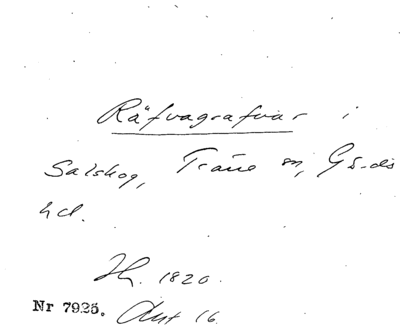 Räfvagrafvar i
Salskog, Träne sn, Gä-ds
hd.
Jh. 1820.
Nr 7925. Ant 16.